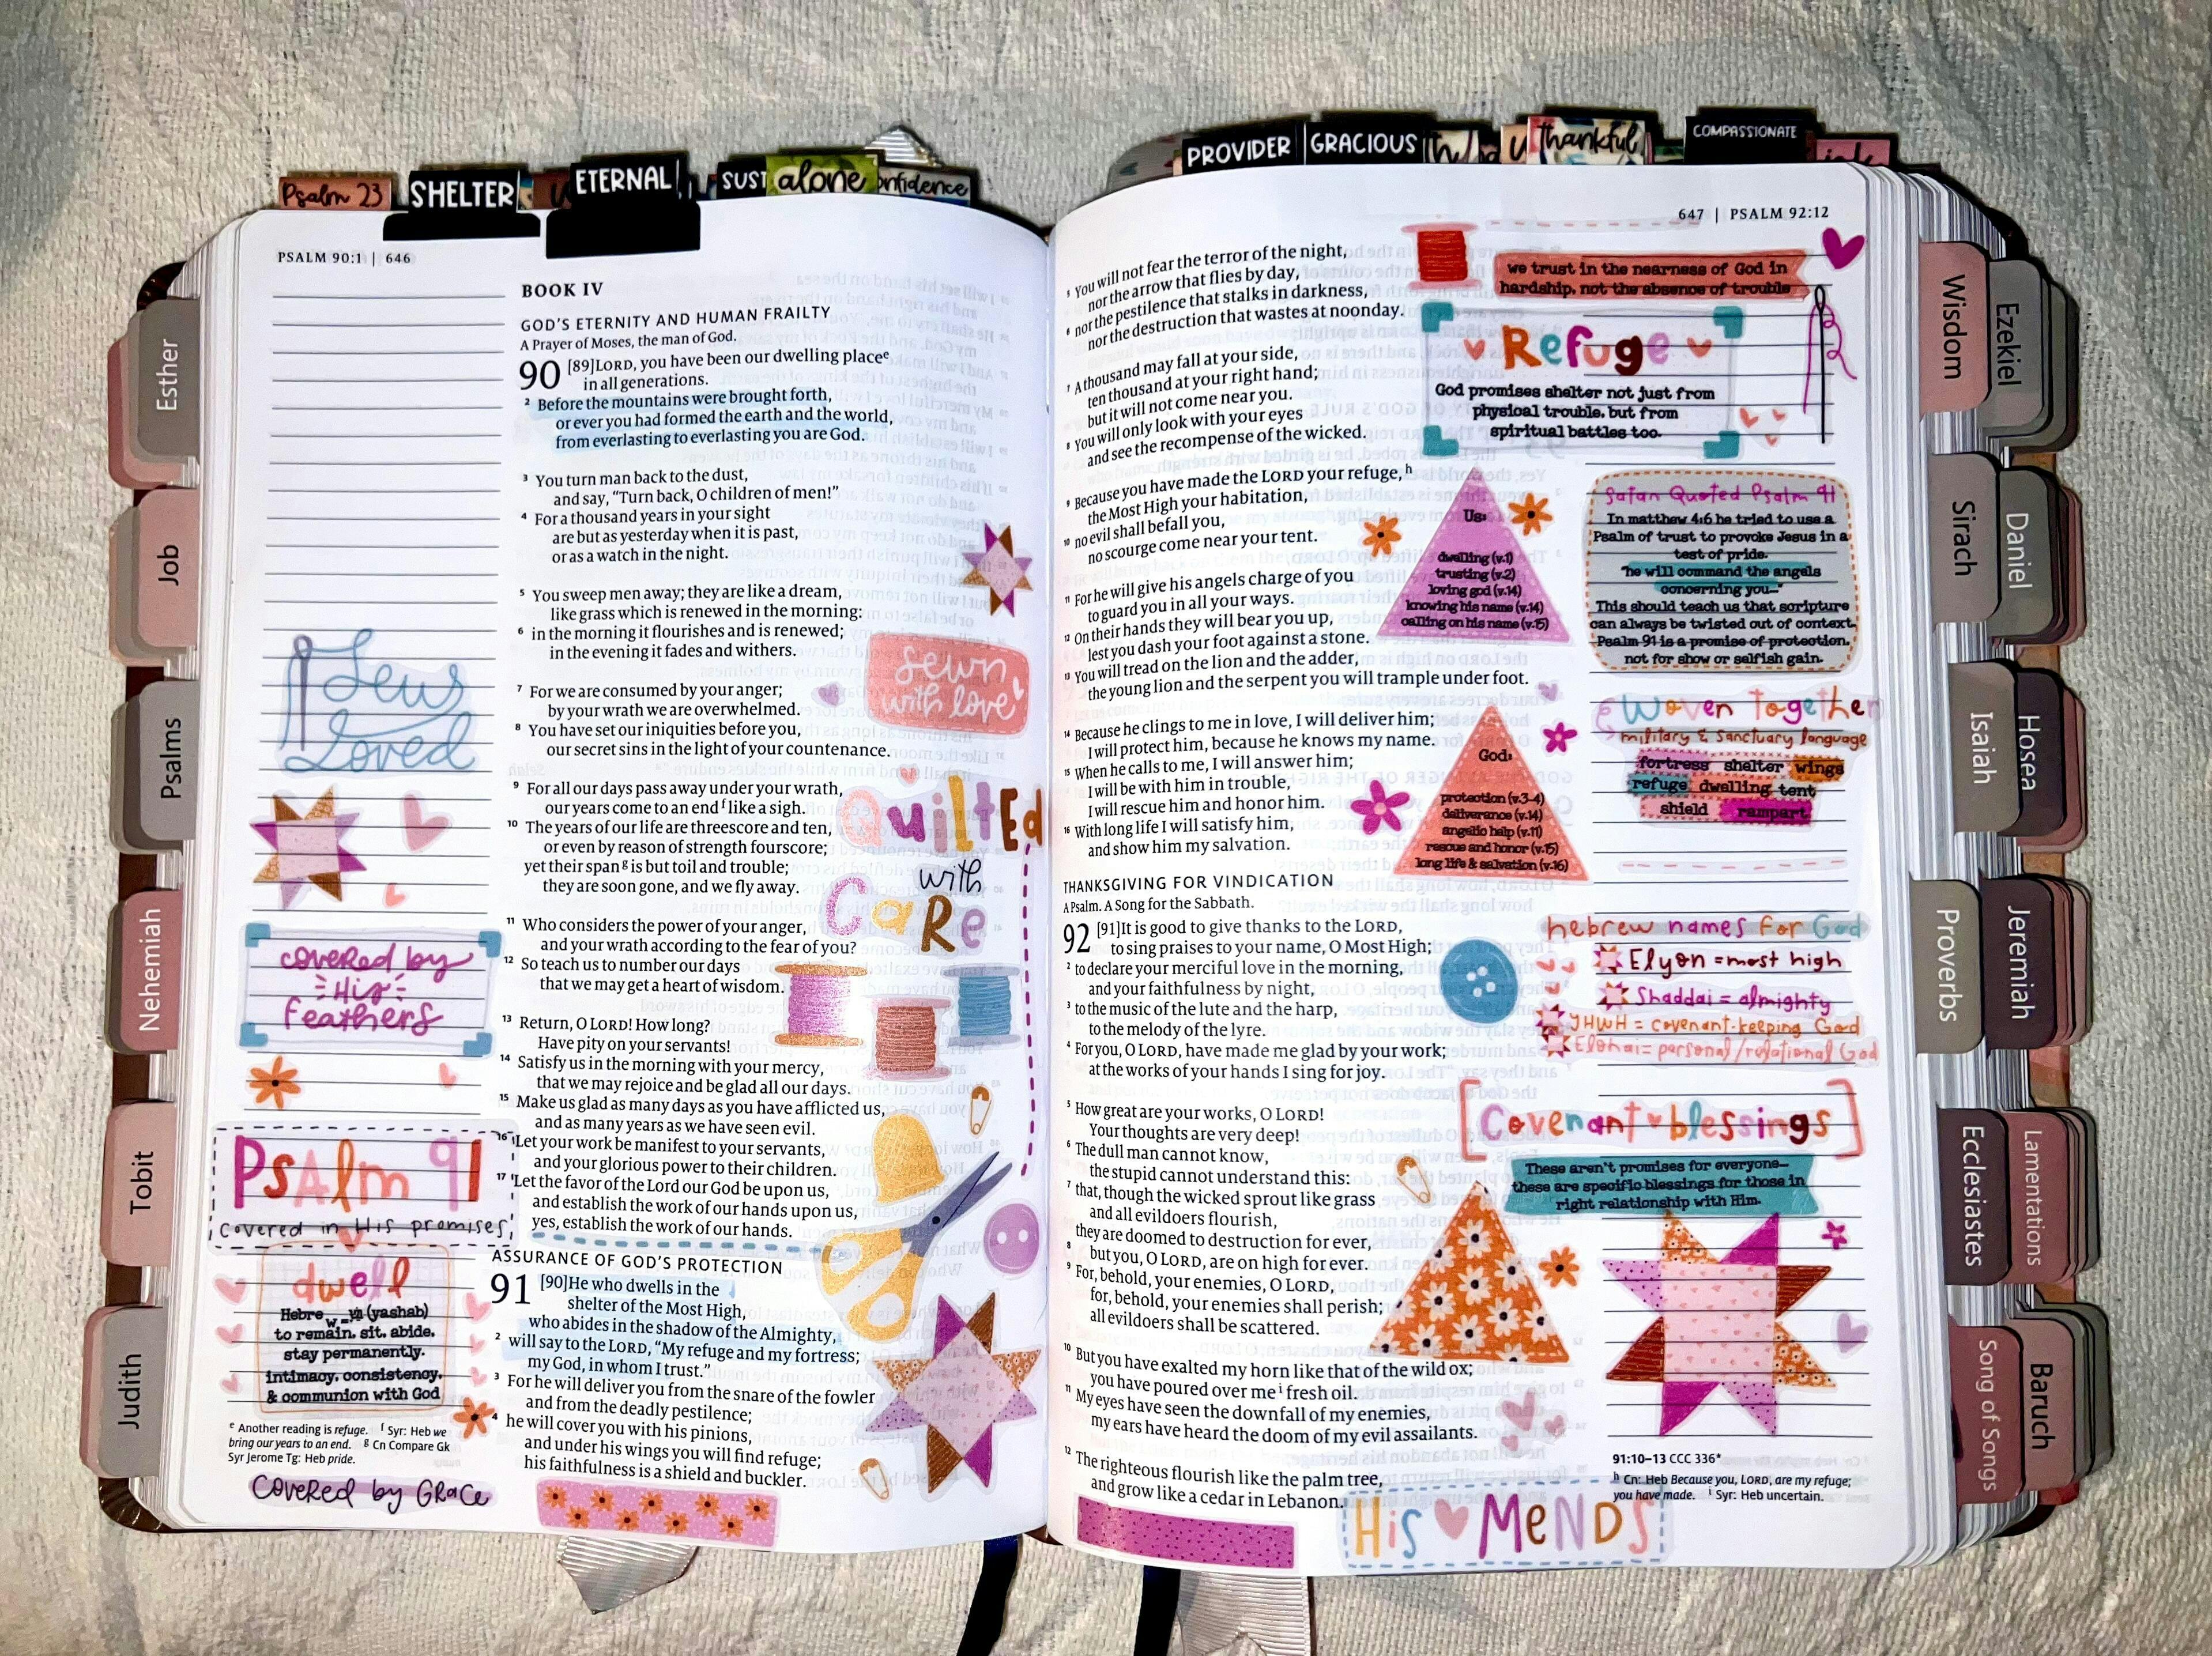 Psalm 23
SHELTER
ETERNAL
SUST
alone
onfidence
PROVIDER
GRACIOUS
thankful
COMPASSIONATE
Esther
Job
Psalms
Nehemiah
Tobit
Judith
PSALM 90:1 | 646
BOOK IV
GOD'S ETERNITY AND HUMAN FRAILTY
A Prayer of Moses, the man of God.
90 [89]LORD, you have been our dwelling place e
in all generations.
2 Before the mountains were brought forth,
or ever you had formed the earth and the world,
from everlasting to everlasting you are God.
3 You turn man back to the dust,
and say, “Turn back, O children of men!”
4 For a thousand years in your sight
are but as yesterday when it is past,
or as a watch in the night.
5 You sweep men away; they are like a dream,
like grass which is renewed in the morning:
6 in the morning it flourishes and is renewed;
in the evening it fades and withers.
7 For we are consumed by your anger;
by your wrath we are overwhelmed.
8 You have set our iniquities before you,
our secret sins in the light of your countenance.
9 For all our days pass away under your wrath,
our years come to an end f like a sigh.
10 The years of our life are threescore and ten,
or even by reason of strength fourscore;
yet their span g is but toil and trouble;
they are soon gone, and we fly away.
11 Who considers the power of your anger,
and your wrath according to the fear of you?
12 So teach us to number our days
that we may get a heart of wisdom.
13 Return, O LORD! How long?
Have pity on your servants!
14 Satisfy us in the morning with your mercy,
that we may rejoice and be glad all our days.
15 Make us glad as many days as you have afflicted us,
and as many years as we have seen evil.
16 Let your work be manifest to your servants,
and your glorious power to their children.
17 Let the favor of the Lord our God be upon us,
and establish the work of our hands upon us,
yes, establish the work of our hands.
ASSURANCE OF GOD'S PROTECTION
91 [90]He who dwells in the
shelter of the Most High,
who abides in the shadow of the Almighty,
2 will say to the LORD, “My refuge and my fortress;
my God, in whom I trust.”
3 For he will deliver you from the snare of the fowler
and from the deadly pestilence;
4 he will cover you with his pinions,
and under his wings you will find refuge;
his faithfulness is a shield and buckler.
Sews
Loved
covered by
His
feathers
Psalm 91
covered in His promises
dwell
Hebre
w = (yashab)
to remain, sit, abide,
stay permanently.
intimacy, consistency,
& communion with God
e Another reading is refuge. f Syr: Heb we
bring our years to an end. g Cn Compare Gk
Syr Jerome Tg: Heb pride.
Covered by Grace
sewn
with love
QuiltEd
with
CaRe
647 | PSALM 92:12
5 You will not fear the terror of the night,
nor the arrow that flies by day,
6 nor the pestilence that stalks in darkness,
nor the destruction that wastes at noonday.
7 A thousand may fall at your side,
ten thousand at your right hand;
but it will not come near you.
8 You will only look with your eyes
and see the recompense of the wicked.
9 Because you have made the LORD your refuge, h
the Most High your habitation,
10 no evil shall befall you,
no scourge come near your tent.
11 For he will give his angels charge of you
to guard you in all your ways.
12 On their hands they will bear you up,
lest you dash your foot against a stone.
13 You will tread on the lion and the adder,
the young lion and the serpent you will trample under foot.
14 Because he clings to me in love, I will deliver him;
I will protect him, because he knows my name.
15 When he calls to me, I will answer him;
I will be with him in trouble,
I will rescue him and honor him.
16 With long life I will satisfy him,
and show him my salvation.
THANKSGIVING FOR VINDICATION
A Psalm. A Song for the Sabbath.
92 [91]It is good to give thanks to the LORD,
to sing praises to your name, O Most High;
2 to declare your merciful love in the morning,
and your faithfulness by night,
3 to the music of the lute and the harp,
to the melody of the lyre.
4 For you, O LORD, have made me glad by your work;
at the works of your hands I sing for joy.
5 How great are your works, O LORD!
Your thoughts are very deep!
6 The dull man cannot know,
the stupid cannot understand this:
7 that, though the wicked sprout like grass
and all evildoers flourish,
they are doomed to destruction for ever,
8 but you, O LORD, are on high for ever.
9 For, behold, your enemies, O LORD,
for, behold, your enemies shall perish;
all evildoers shall be scattered.
10 But you have exalted my horn like that of the wild ox;
you have poured over me i fresh oil.
11 My eyes have seen the downfall of my enemies,
my ears have heard the doom of my evil assailants.
12 The righteous flourish like the palm tree,
and grow like a cedar in Lebanon.
we trust in the nearness of God in
hardship, not the absence of trouble
Refuge
God promises shelter not just from
physical trouble, but from
spiritual battles too.
Us:
dwelling (v.1)
trusting (v.2)
loving god (v.14)
knowing his name (v.14)
calling on his name (v.15)
Satan Quoted Psalm 91
In matthew 4:6 he tried to use a
Psalm of trust to provoke Jesus in a
test of pride.
"he will command the angels
concerning you..."
This should teach us that scripture
can always be twisted out of context.
Psalm 91 is a promise of protection,
not for show or selfish gain.
God:
protection (v.3-4)
deliverance (v.14)
angelic help (v.11)
rescue and honor (v.15)
long life & salvation (v.16)
Woven together
military & sanctuary language
fortress shelter wings
refuge dwelling tent
shield rampart
hebrew names for God
Elyon = most high
Shaddai = almighty
YHWH = covenant-keeping God
Elohai = personal/relational God
Covenant blessings
These aren't promises for everyone—
these are specific blessings for those in
right relationship with Him.
91:10–13 CCC 336*
h Cn: Heb Because you, LORD, are my refuge;
you have made. i Syr: Heb uncertain.
His MeNDS
Wisdom
Sirach
Isaiah
Proverbs
Ecclesiastes
Song of Songs
Ezekiel
Daniel
Hosea
Jeremiah
Lamentations
Baruch